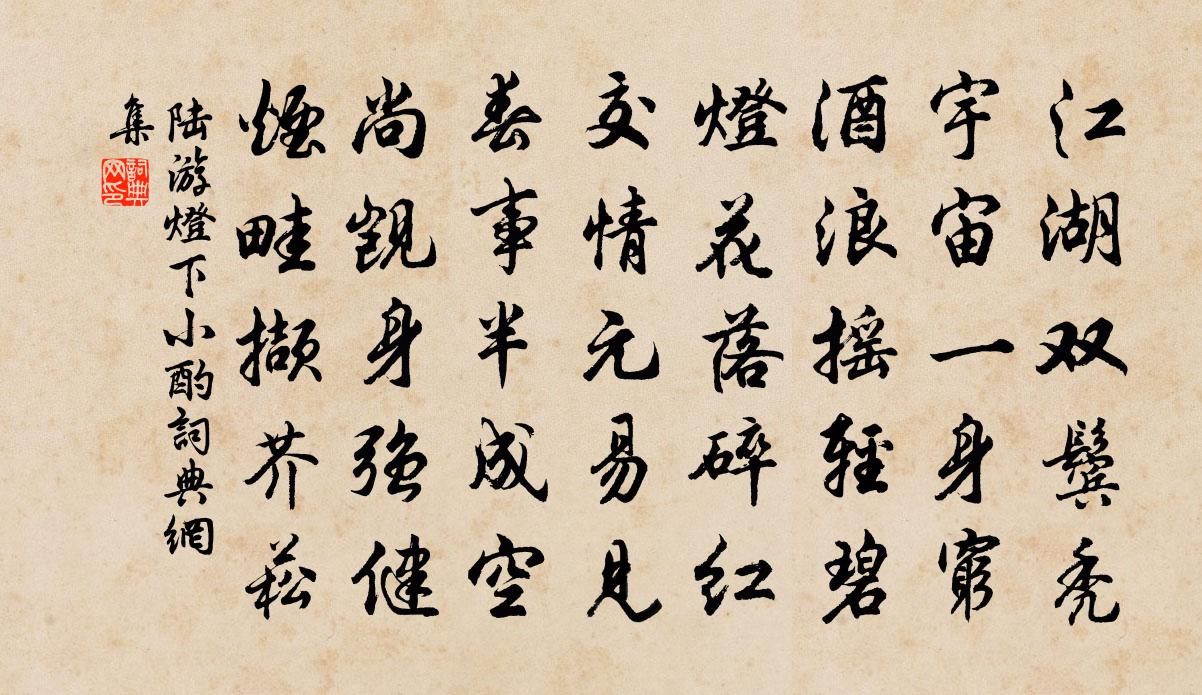 江湖双鬓秃
宇宙一身穷
酒浪摇轻碧
燈花落碎红
交情元易见
春事半成空
尚觊身强健
煙畦撷芥菘
陆游燈下小酌詞典網
集
詞典网印